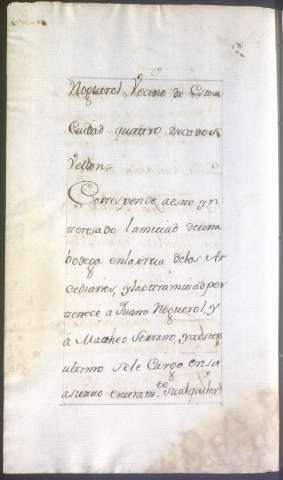 Noguerol Vecino de Esta
Ciudad quatro ducados
Vellon.
Corresponde a este yn
teresado la mitad de una
bodega en la rua de los Ar
cedianos, y la otra mitad per
tenece a Juana Noguerol, y
á Matheo Serrano, y a este
ultimo se le Cargo en su
asiento enteram.te su alquiler